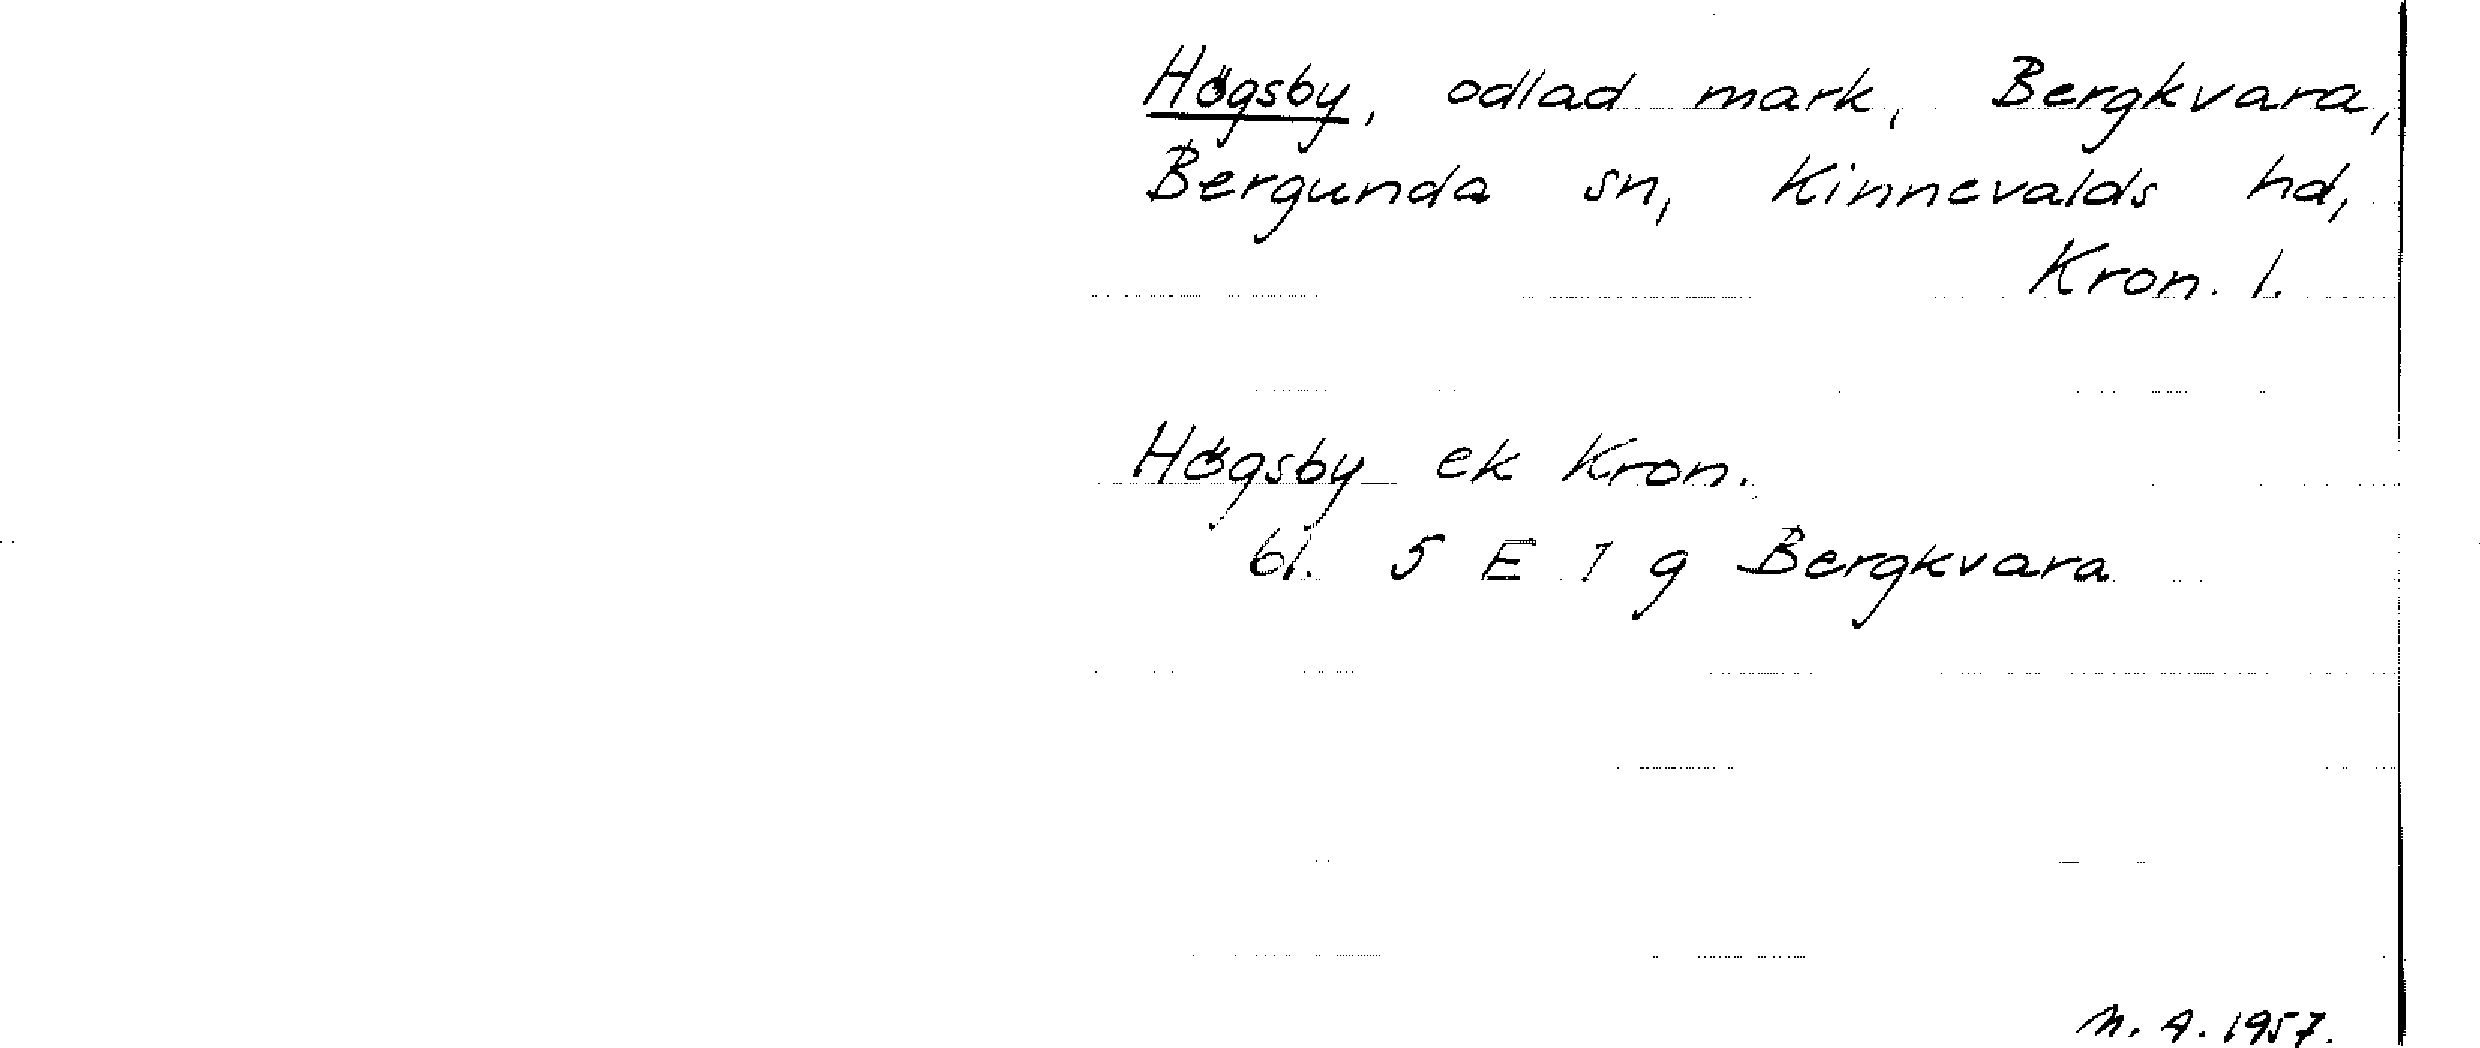 Högsby, odlad mark, Bergkvara,
Bergunda sn, Kinnevalds hd,
Kron. l.
Högsby ek Kron.
bl. 5 E 1 g Bergkvara
N. A. 1957.